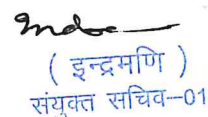 ( इन्द्रमणि )
संयुक्त सचिव--01